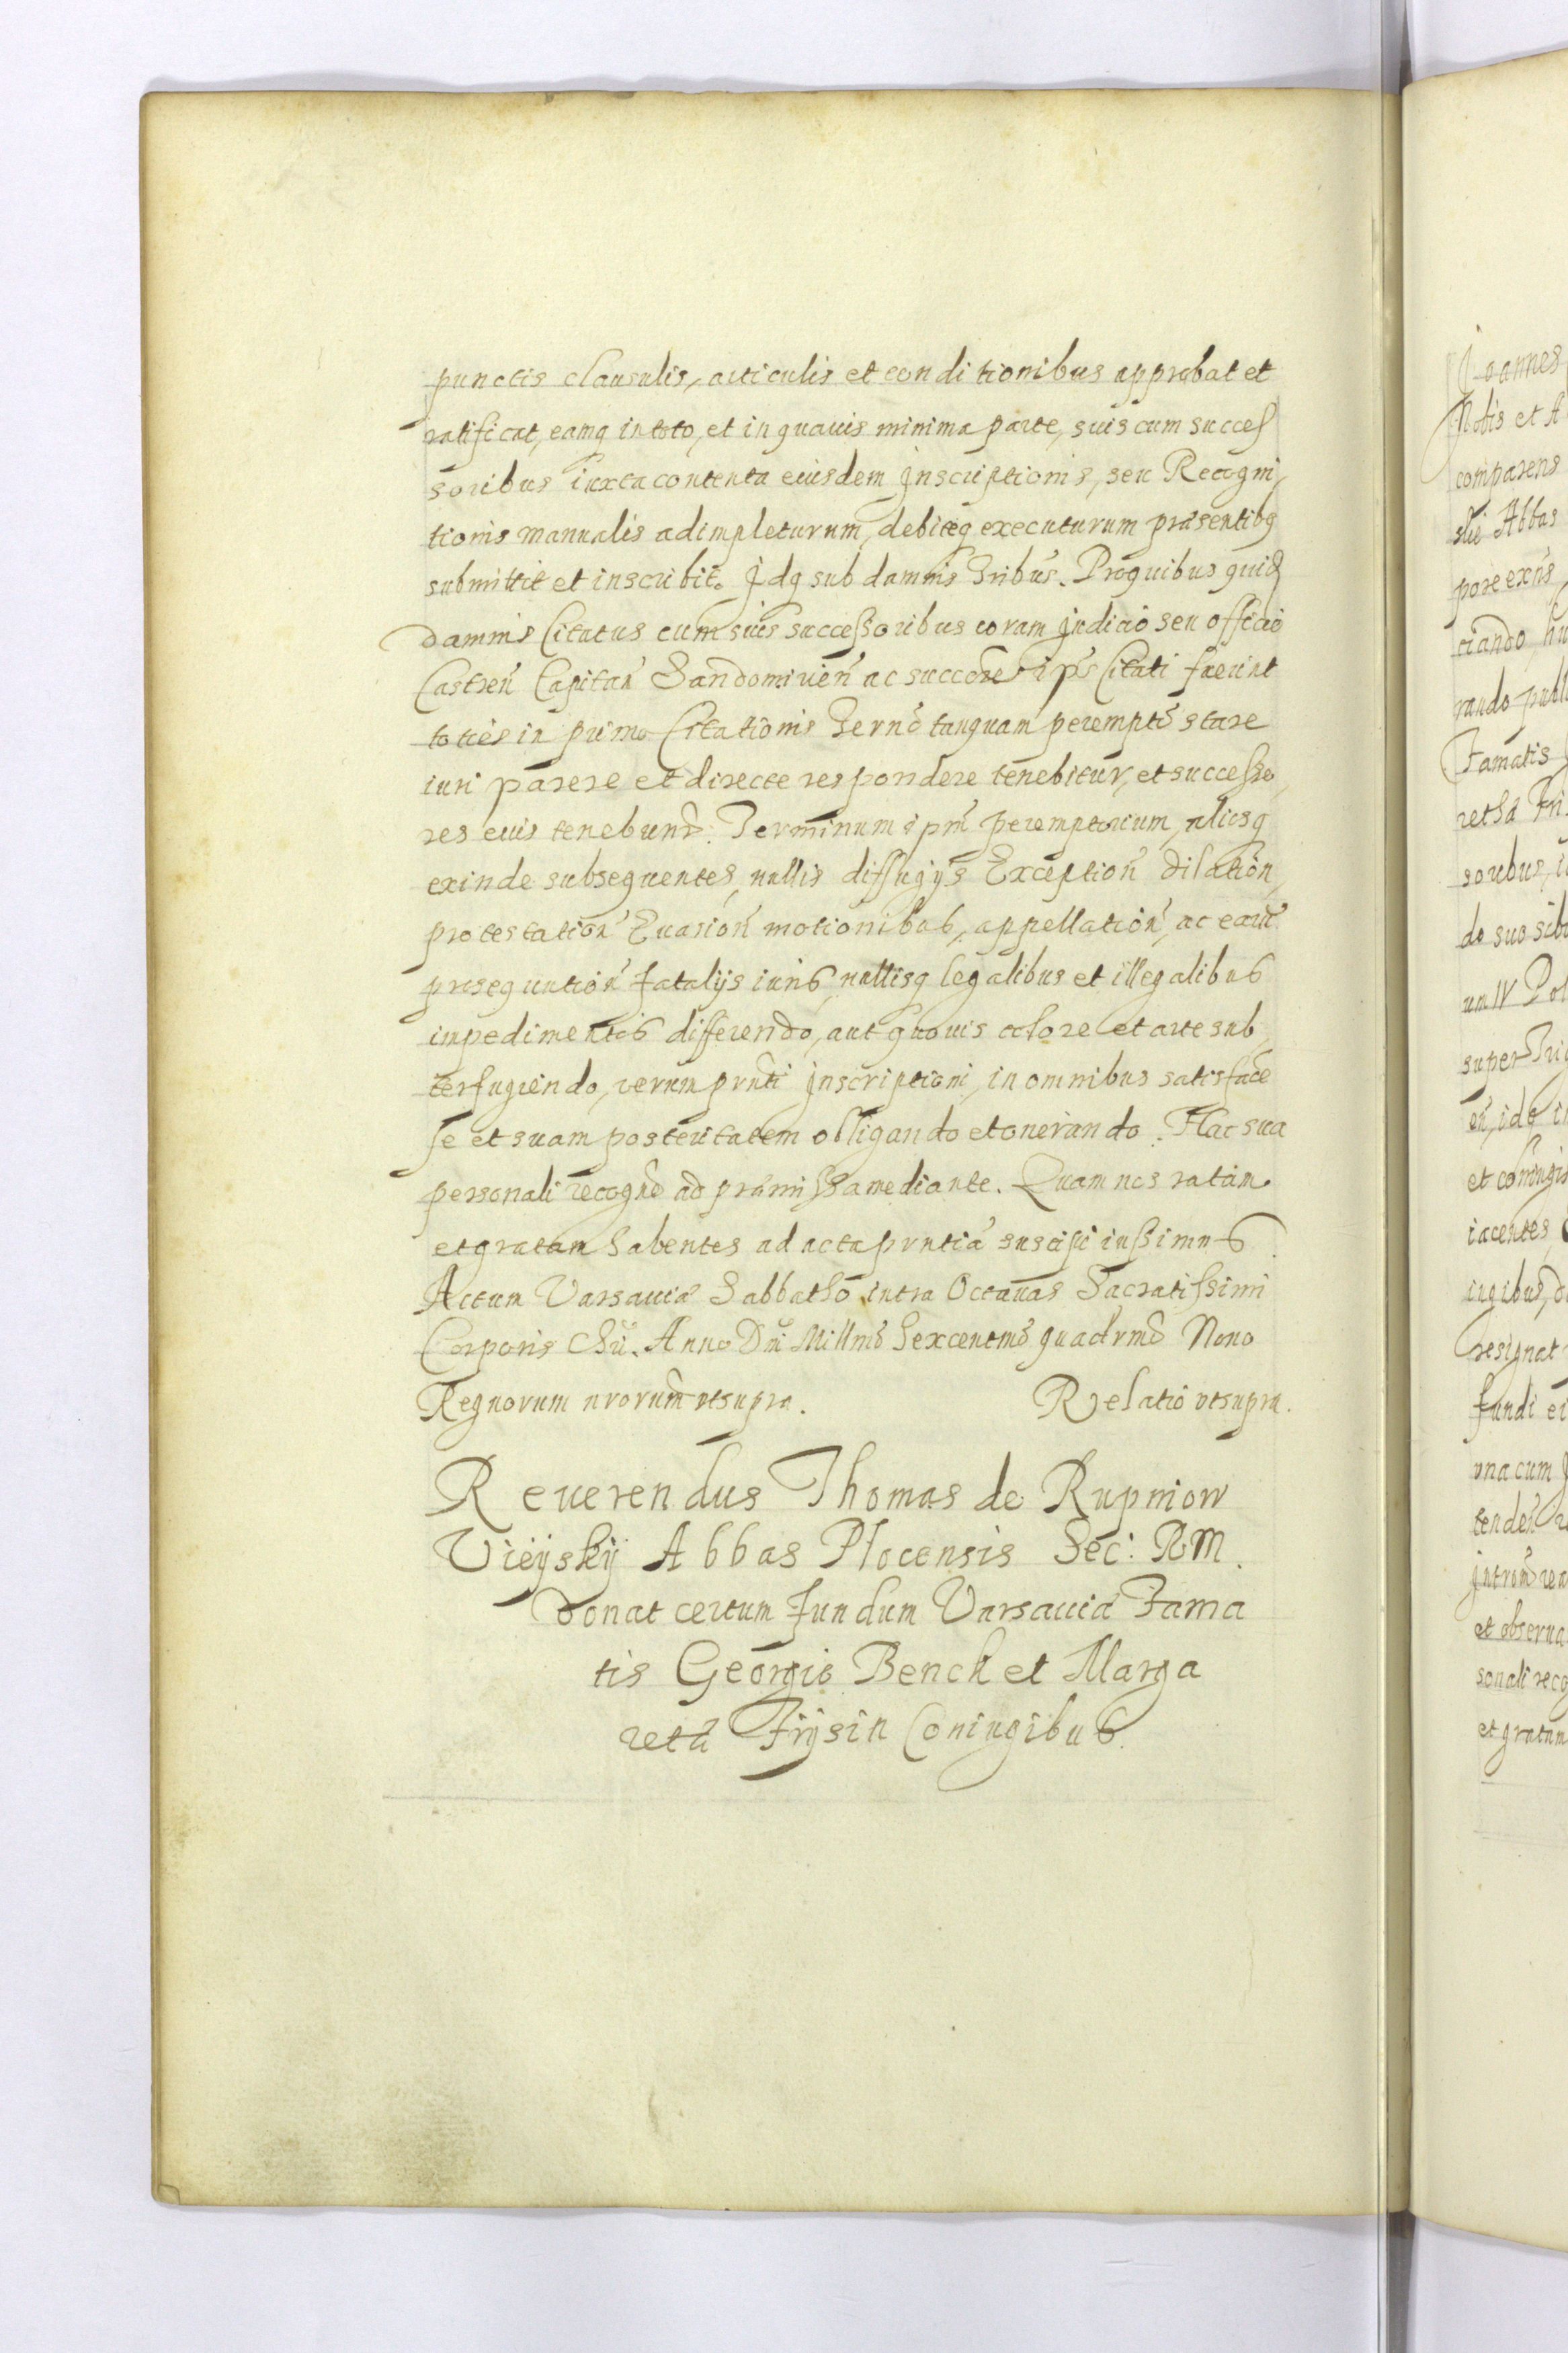 punctis clausulis, articulis et conditionibus approbat et
ratificat, eamq in toto, et in quauis minima parte, suis cum succes
soribus iuxta contenta eiusdem Inscriptionis, seu Recogni,
tionis manualis adimpleturum, debiteq executurum præsentibq
submittit et inscribit. Idq sub damnis Tribus. Proquibus quid
damnis Citatus cum suis successoribus coram Judicio seu officio
Castren Capitan Sandomirien ac succore ips Citati fuerint
toties in primo Citationis Termo tanquam perempto stare
iuri parere et directe respondere tenebitur, et successo,
res eius tenebunt. Terminum ipm peremptorium, aliosq
exinde subsequentes, nullis diffugijs Exception dilation,
protestation Euasion motionibus, appellation, ac earu
prosequution fatalijs iuris, nullisq legalibus et illegalibus
impedimentis differendo, aut quouis colore et arte sub,
terfugiendo, verum prnti Inscriptioni, in omnibus satisface
se et suam posteritatem obligando et onerando. Hac sua
personali recogne ad præmissa mediante. Quam nos ratam
et gratam habentes ad acta prntia suscipi iussimus
Actum Varsauiæ Sabbatho intra Octauas Sacratissimi
Corporis Chri. Anno Dni Millmo Sexcentmo quadrmo Nono
Regnorum nrorum vt supra. Relatio vt supra.
Reuerendus Thomas de Rupniow
Vieyskij Abbas Plocensis Sec: RM.
donat certum fundum Varsauiæ Fama
tis Georgio Benck et Marga
retæ Frysin Coniugibus.
Joannes
Nobis et
comparens
Abbas
ciando,
rando
Famatis
soribus,
do suo sib
super
et coniugi
iacentes,
ingibus,
resignat
fundi
vna cum
et obserua
sonali reco
et gratam